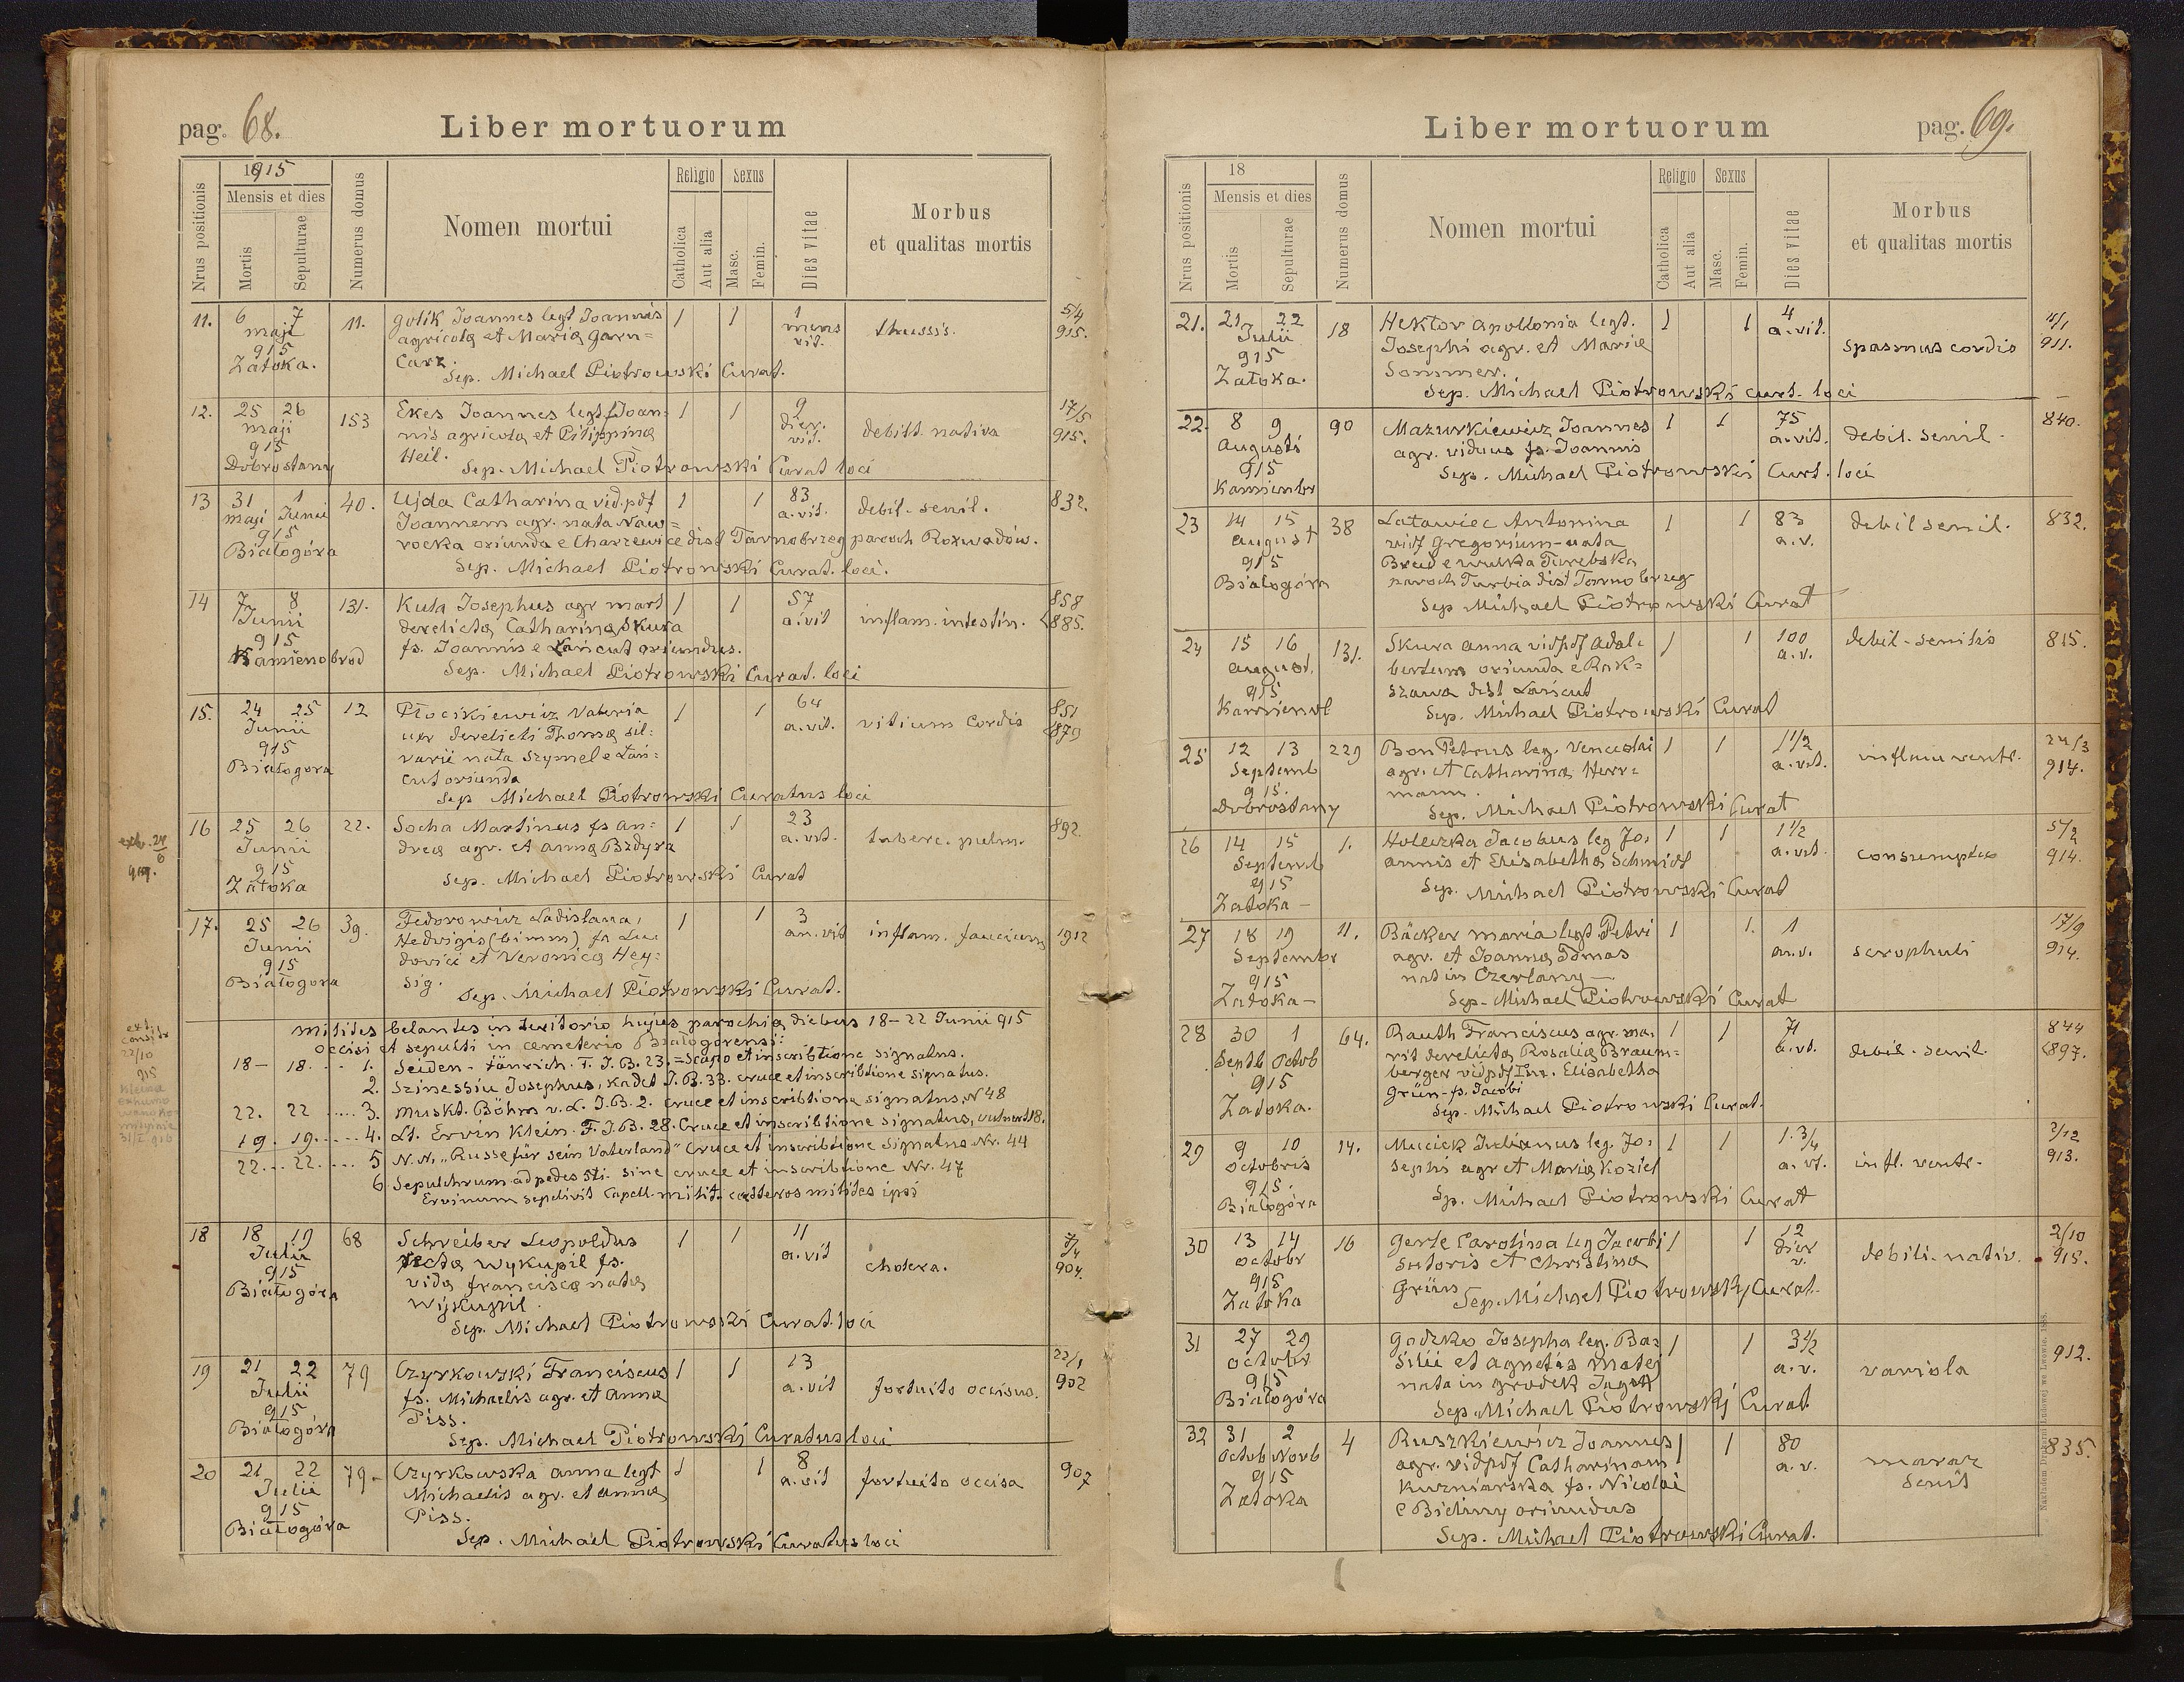 pag. 68.
Liber mortuorum
1915
Nrus positionis
Mensis et dies
Mortis
Sepulturae
Numerus domus
Nomen mortui
Religio
Catholica
Aut alia
Sexus
Masc.
Femin.
Dies vitae
Morbus
et qualitas mortis
11. 6 7 11. Golik Joannes legt Joannis 1 1 1 5/4
maji agricolą et Marią Garn= mens tussis. 915.
915 carz vit.
Zatoka. Sep. Michael Piotrowski Curat.
12. 25 26 153 Ekes Joannes legt Joan= 1 1 9 17/5
maji nis agricolą et Pilippiną dier. debilt. nativa 915.
915 Heil. vit.
Dobrostany Sep. Michael Piotrowski Curat loci
13 31 1 40. Ujda Catharina vid. pdf 1 1 83 debil. senil. 832.
maji Junii Joannem agr. nata Naw= a. vit.
915 rocka oriunda e Charzewice dist Tarnobrzeg paroch Rozwadów.
Białogóra Sep. Michael Piotrowski Curat. loci.
14 7 8 131. Kuta Josephus agr mart 1 1 57 858
Junii derelictą Cathariną Skura a. vit inflam. intestin. 885.
915 fs. Joannis e Łańcut oriundus.
Kamienobrod Sep. Michael Piotrowski Curat. loci
15. 24 25 12 Płocikiewicz Valeria 1 1 64 851
Junii uxr derelicti Thomą sil= a. vit. vitium cordis 879
915 varii nata Szymel e Łań=
Białogora cut oriunda
Sep Michael Piotrowski Curatus loci
16 25 26 22. Socha Martinus fs An= 1 1 23 892
Junii dreą agr. et Anną Bzdyra a. vit. taberc. pulm.
915
Zatoka Sep. Michael Piotrowski Curat
17. 25 26 39. Fedorowicz Ladislaua, 1 1 3
Junii Hedvigis (bimm) fa Lu= an. vit inflam. faucium 1912
915 dovici et Veronicą Hey=
Białogora sig.
Sep. Michael Piotrowski Curat.
milites belantes in teritorio hujus parochią diebus 18–22 Junii 915
occisi et sepulti in cemeterio Białogorensi:
18– 18. ... 1. Seiden - fänrich. F. J. B. 23. = scapo et inscribtione signatus.
2. Szinessiu Josephus, Kadet J. B. 33. cruce et inscribtione signatus.
22. 22 ..... 3. muskt. Böhm v. L. J. B. 2. Cruce et inscribtione signatus, N 48
19. 19. .... 4. Lt. Ervin Klein. F. J. B. 28. Cruce et inscribtione signatus, vulnert 18.
22... 22. .... 5 N. N. „Russe für sein Vaterland" Cruce et inscribtione signatus Nr. 44
6 Sepulchrum ad pedes 5ti. sine cruce et inscribtione Nr. 47
Ervinum sepelivit Capell. milit. caeteros milites ipsi
18 18 19 68 Schreiber Leopoldus 1 1 11
Julii recta Wykupil fs. a. vit cholera. 904.
915 vidą franciscą natą
Białogóra Wykupil.
Sep. Michael Piotrowski Curat. loci
19 21 22 79 Czyrkowski Franciscus 1 1 13 22/1
Julii fs. Michaelis agr. et Anną a. vit fortuito occisus. 902
915 Piss.
Białogóra Sep. Michael Piotrowski Curatus loci
20 21 22 79- Czyrkowska Anna legt 1 1 8 907
Julii Michaelis agr. et Anną a. vit fortuito occisa
915 Piss.
Białogóra
Sep. Michael Piotrowski Curatus loci
Liber mortuorum
pag. 69.
18
Nrus positionis
Mensis et dies
Mortis
Sepulturae
Numerus domus
Nomen mortui
Religio
Catholica
Aut alia
Sexus
Masc.
Femin.
Dies vitae
Morbus
et qualitas mortis
21. 21 22 18 Hektor Apollonia legt. 1 1 4
Julii Josephi agr. et Marią a. vit. spasmus cordis 911.
915 Sommer.
Zatoka. Sep. Michael Piotrowski Curt. loci
22. 8 9 90 Mazurkiewicz Joannes 1 1 75 840.
Augusti agr. viduus fs. Joannis a. vit. debil. senil.
915 Sep. Michael Piotrowski Curt. loci
Kamienbr
23 14 15 38 Latawiec Antonina 1 1 83 debil senil. 832.
August vidf Gregorium - nata a. v.
915 e Wulka Turebska
Białogóra paroch Turbia dist Tarnobrzeg
Sep Michael Piotrowski Curat
24 15 16 131. Skura Anna vid pdf Adal= 1 1 100 debil - senilis 815.
August. bertum oriunda e Rak= a. v.
915 szawa dist Łańcut
Sep. Michael Piotrowski Curat
25 12 13 229 Bon Petrus leg. Venceslai 1 1 1 1/2 24/3
Septemb agr. et Cathariną Herr= a. vit. inflam ventr. 914.
915. mann.
Dobrostany Sep. Michael Piotrowski Curat
26 14 15 1. Holeczka Jacobus leg Jo= 1 1 1 1/2 5/2
Septemb annis et Elisabethą Schmidt a. vit. consumptio 914.
915 Sep. Michael Piotrowski Curat
Zatoka -
27 18 19 11. Bäcker Maria legt Petri 1 1. 1 17/9
Septembr agr. et Joanną Tomas an. v. scrophuli 914.
915 nat in Czerlany -
Zatoka - Sep - Michael Piotrowski Curat
28 30 1 64. Rauth Franciscus agr. ma= 1 1 71 844
Septb Octob rit derelictą Rosalią Braum= a. vt. debil - senil. 897.
915 berger vid pdf Elisabetha
Zatoka. Grün - fs. Jacobi
Sep. Michael Piotrowski Curat.
29 9 10 14. Maciek Julianus leg. Jo= 1 1 1. 3/4 2/12
Octobris sephi agr et Marią Koziel a. vt. infl. ventr. 913.
915.
Białogóra Sp. Michael Piotrowski Curat
30 13 14 16 Gerle Carolina leg Jacobi 1 1 12 2/10
Octobr sutoris et Christiną dier debili. nativ. 915.
915 Grüns v.
Zatoka Sep. Michael Piotrowsky Curat.
31 27 29 Godzko Josepha leg. Ba= 1 1 3 1/2 912.
Octobr silii et Agnetis Matej a. v. variola
915 nata in Grodek Jagell
Białogóra Sep. Michael Piotrowski Curat
32 31 2 4 Ruszkiewicz Joannes 1 1 80 835.
Octob Novb agr. vid pdf Catharinam a. v. maraz
915 Kuzniarska fs. Nicolai senil
Zatoka e Bieliny oriundus
Sep. Michael Piotrowski Curat.